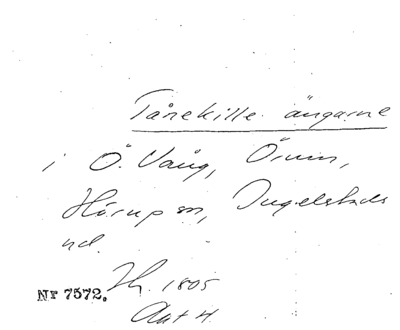 Tånekille ängarne
i Ö. Vång, Örum,
Hörup sn, Ingelstads
hd.
Nr 7572. Th. 1805
Aut 4